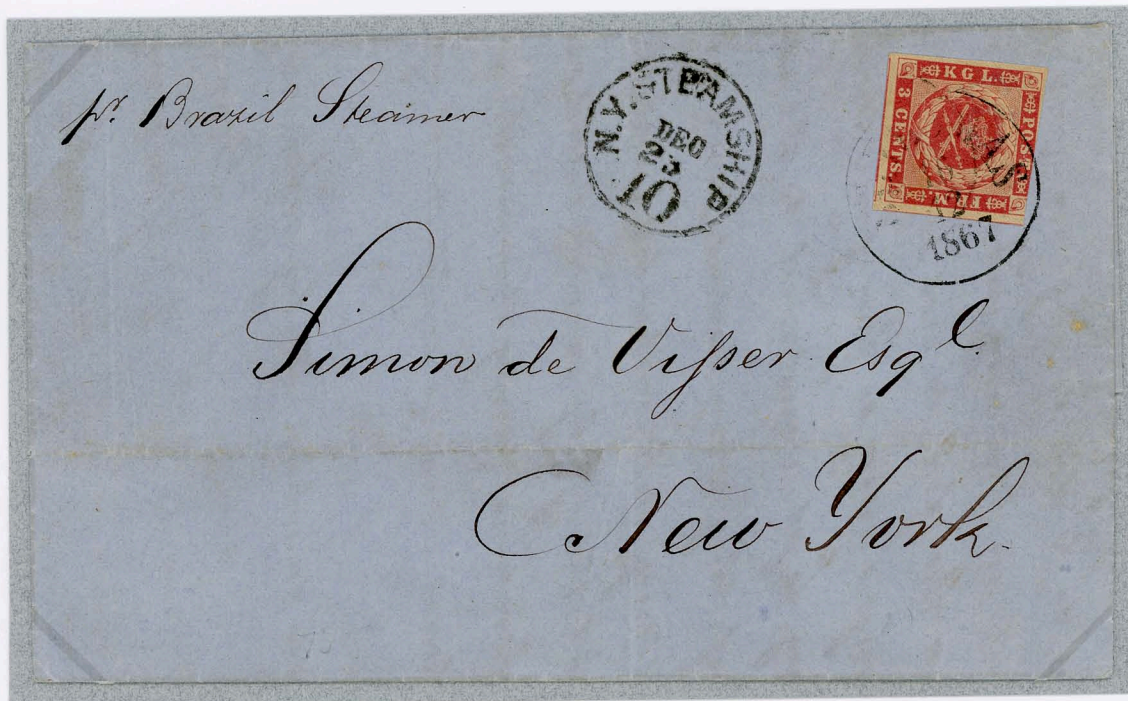 pr. Brazil Steamer
N.Y. STEAMSHIP
DEC
23
10
KGL.
POST
FRM.
3 CENTS.
1867
Simon de Viſser Esqe.
New York.